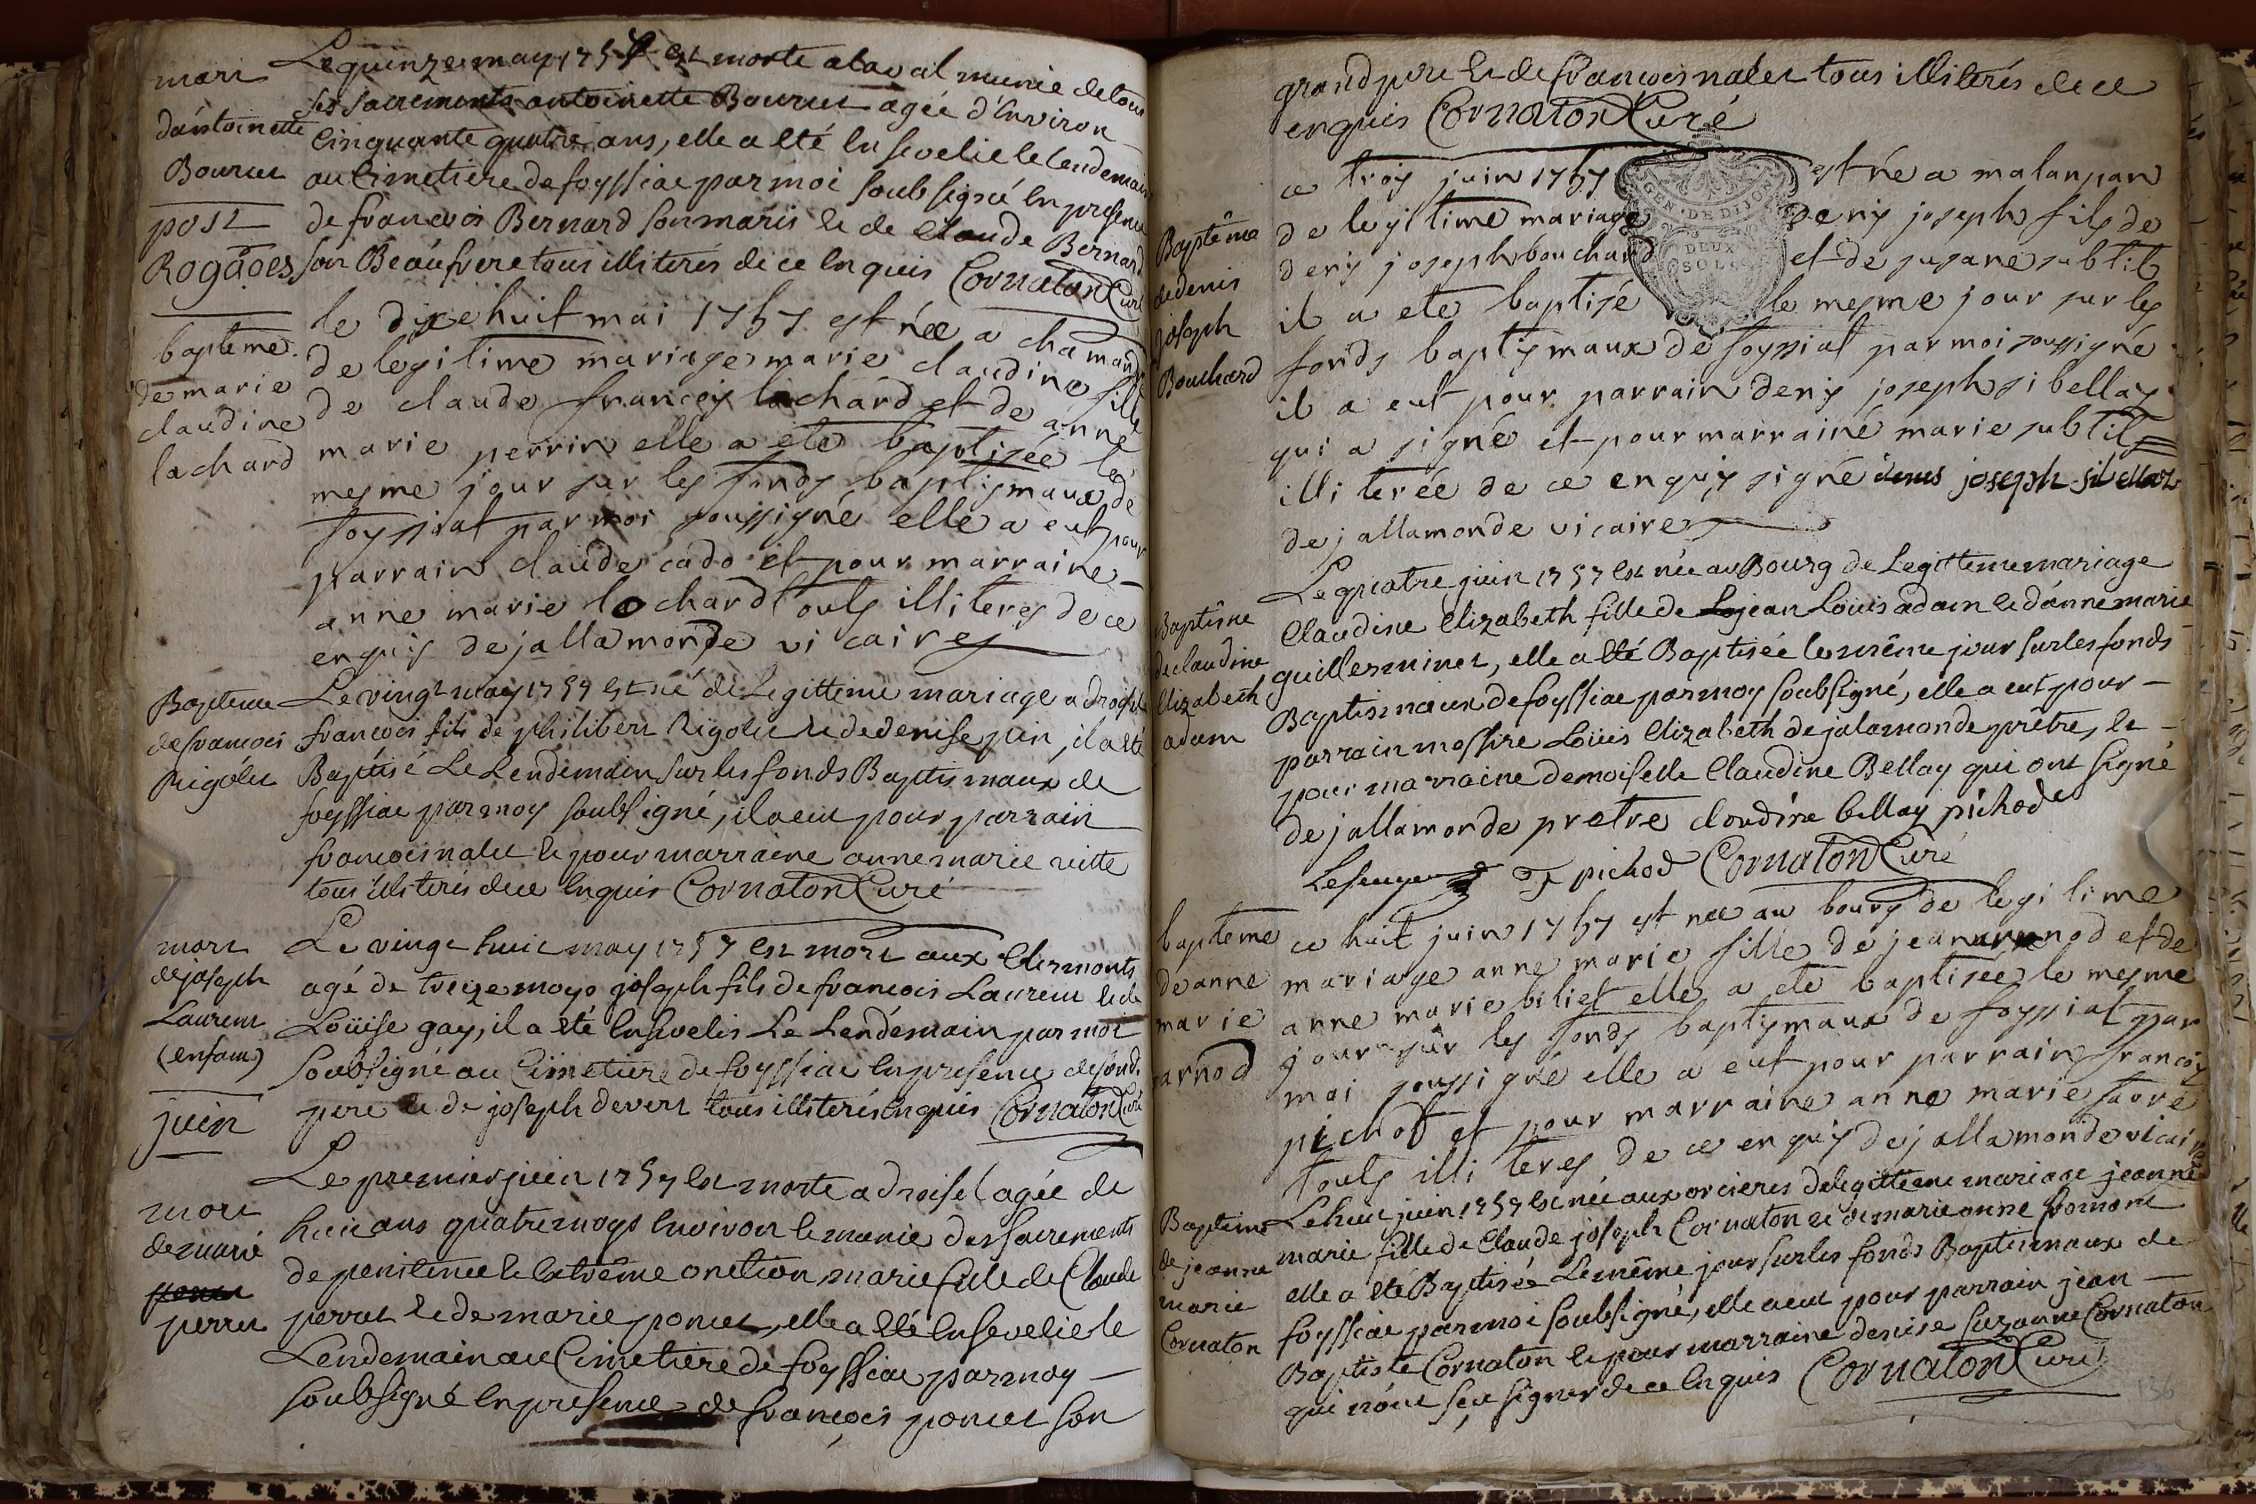 mort
d'antoinette
Bourcet
post
Rogaoes
Le quinze may 1757 est morte a laval munie de tous
ses sacrements antoinette Bourcet agée d'environ
Cinquante quatre ans, elle a eté Ensevelie le Lendemain
au Cimetiere de foyssiac par moi soubsigné En presence
de francois Bernard son maris et de Claude Bernard
son Beaufrere tous illiterés de ce Enquis Cornaton Curé
baptême
de marie
claudine
lachard
le dixe huit mai 1757 est née a chamand
de legitime mariage marie claudine fille
de claude françois lachard et de anne
marie perrin elle a ete baptisée le
mesme jour sur les fonds baptismaux de
foyssiat par moi soussigné elle a eut pour
parrain claude cado et pour marraine
anne marie lochard touts illiteres de ce
enquis dejallamonde vicaire
Baptême
de francois
Rigolet
Le vingt may 1757 est né de Legittime mariage a droisel
francois fils de philibert Rigolet et de denise pin, il a eté
Baptisé Le Lendemain sur les fonds Baptismaux de
foyssiac par moy soubsigné, il a eut pour parrain
francois nalet et pour marraine anne marie vitte
tous illiterés de ce Enquis Cornaton Curé
mort
de joseph
Laurent
(enfant)
Le vingt huit may 1757 est mort aux Clermonts
agé de treize moys joseph fils de francois Laurent et de
Loüise gay, il a eté Ensevelis Le Lendemain par moi
soubsigné au Cimetiere de foyssiac En presence de son d.
pere et de joseph devert tous illiterés Enquis Cornaton Curé
juin
mort
de marie
perret
Le premier juin 1757 est morte a droisel agée de
huit ans quatre moys Environ et munie des sacrements
de penitence et Extrême onction marie fille de Claude
perrat et de marie poncet, elle a eté Ensevelie le
Lendemain au Cimetiere de foyssiac par moy
soubsigné En presence de françois poncet son
grand pere et de francois nalet tous illiterés de ce
enquis Cornaton Curé
Baptême
de denis
joseph
Bouchard
ce trois juin 1757 est né a malanpan
de legitime mariage denis joseph fils de
denis joseph bouchard et de susane subtil
il a ete baptisé le mesme jour sur les
fonds baptismaux de foyssiat par moi soussigné
il a eut pour parrain denis joseph sibellas
qui a signé et pour marraine marie subtil
illiterée de ce enquis signé denis joseph sibellas
dejallamonde vicaire
GEN. DE DIJON
DEUX
SOLS
Baptême
de claudine
Elizabeth
adam
Le quatre juin 1757 est née au Bourg de Legittime mariage
Claudine Elizabeth fille de jean Loüis adam et d'anne marie
guillerminet, elle a eté Baptisée le même jour sur les fonds
Baptismaux de foyssiac par moy soubsigné, elle a eut pour
parrain messire Loüis Elizabeth de jalamonde prêtre, et
pour marraine demoiselle Claudine Bellay qui ont signé
dejallamonde pretre cloudine bellay pichod
pichod Cornaton Curé
baptême
de anne
marie
arnod
ce huit juin 1757 est née au bourg de legitime
mariage anne marie fille de jean arnod et de
anne marie biliet elle a ete baptisée le mesme
jour sur les fonds baptismaux de foyssiat par
moi soussigné elle a eut pour parrain francois
pichot et pour marraine anne marie favre
touts illiteres de ce enquis dejallamonde vicaire
Baptême
de jeanne
marie
Cornaton
Le huit juin 1757 est née aux orcieres de legittime mariage jeanne
marie fille de Claude joseph Cornaton et de marie anne fromont
elle a eté Baptisée Le même jour sur les fonds Baptismaux de
foyssiac par moi soubsigné, elle a eut pour parrain jean
Baptiste Cornaton et pour marraine denise suzanne Cornaton
qui n'ont sçu signer de ce Enquis Cornaton Curé
136